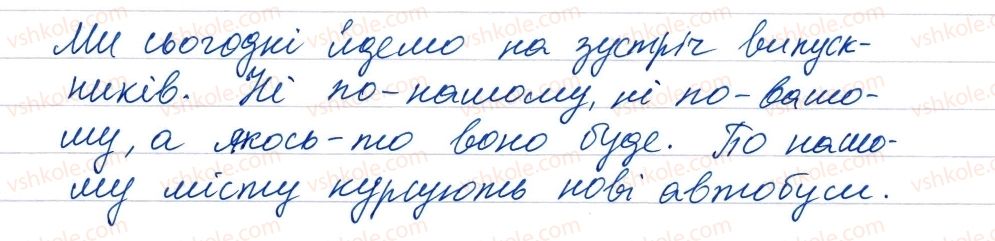 Ми сьогодні йдемо на зустріч випуск-
ників. Ні по-нашому, ні по-вашо-
му, а якось-то воно буде. По нашо-
му місту курсують нові автобуси.